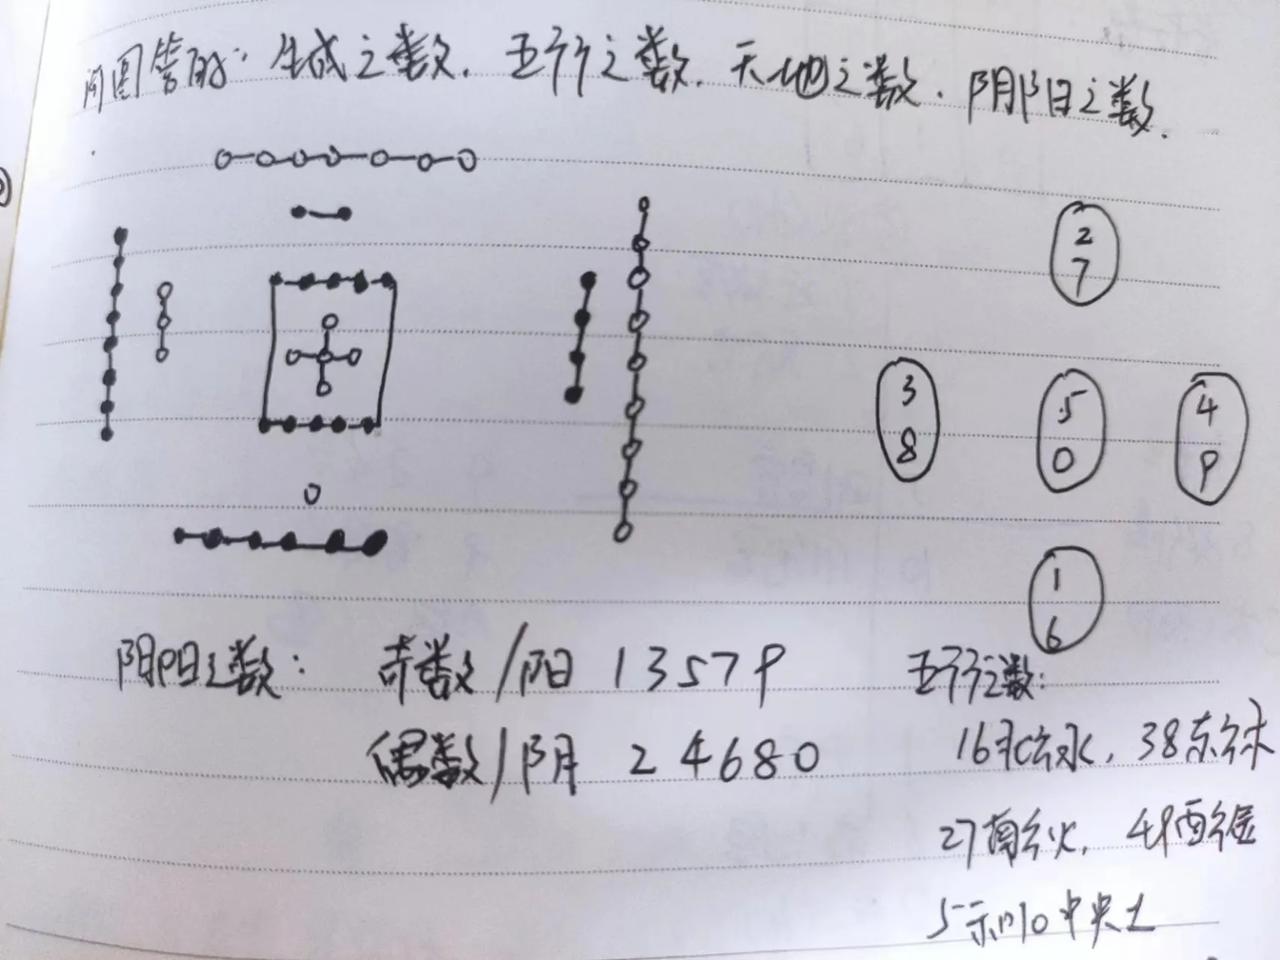 河图答的: 生成之数. 五行之数. 天地之数. 阴阳之数.
2
7
3
8
5
0
4
9
1
6
阴阳之数: 奇数/阳 13579
偶数/阴 24680
五行之数:
16北行水, 38东行木
27南行火, 49西行金
5和10中央土